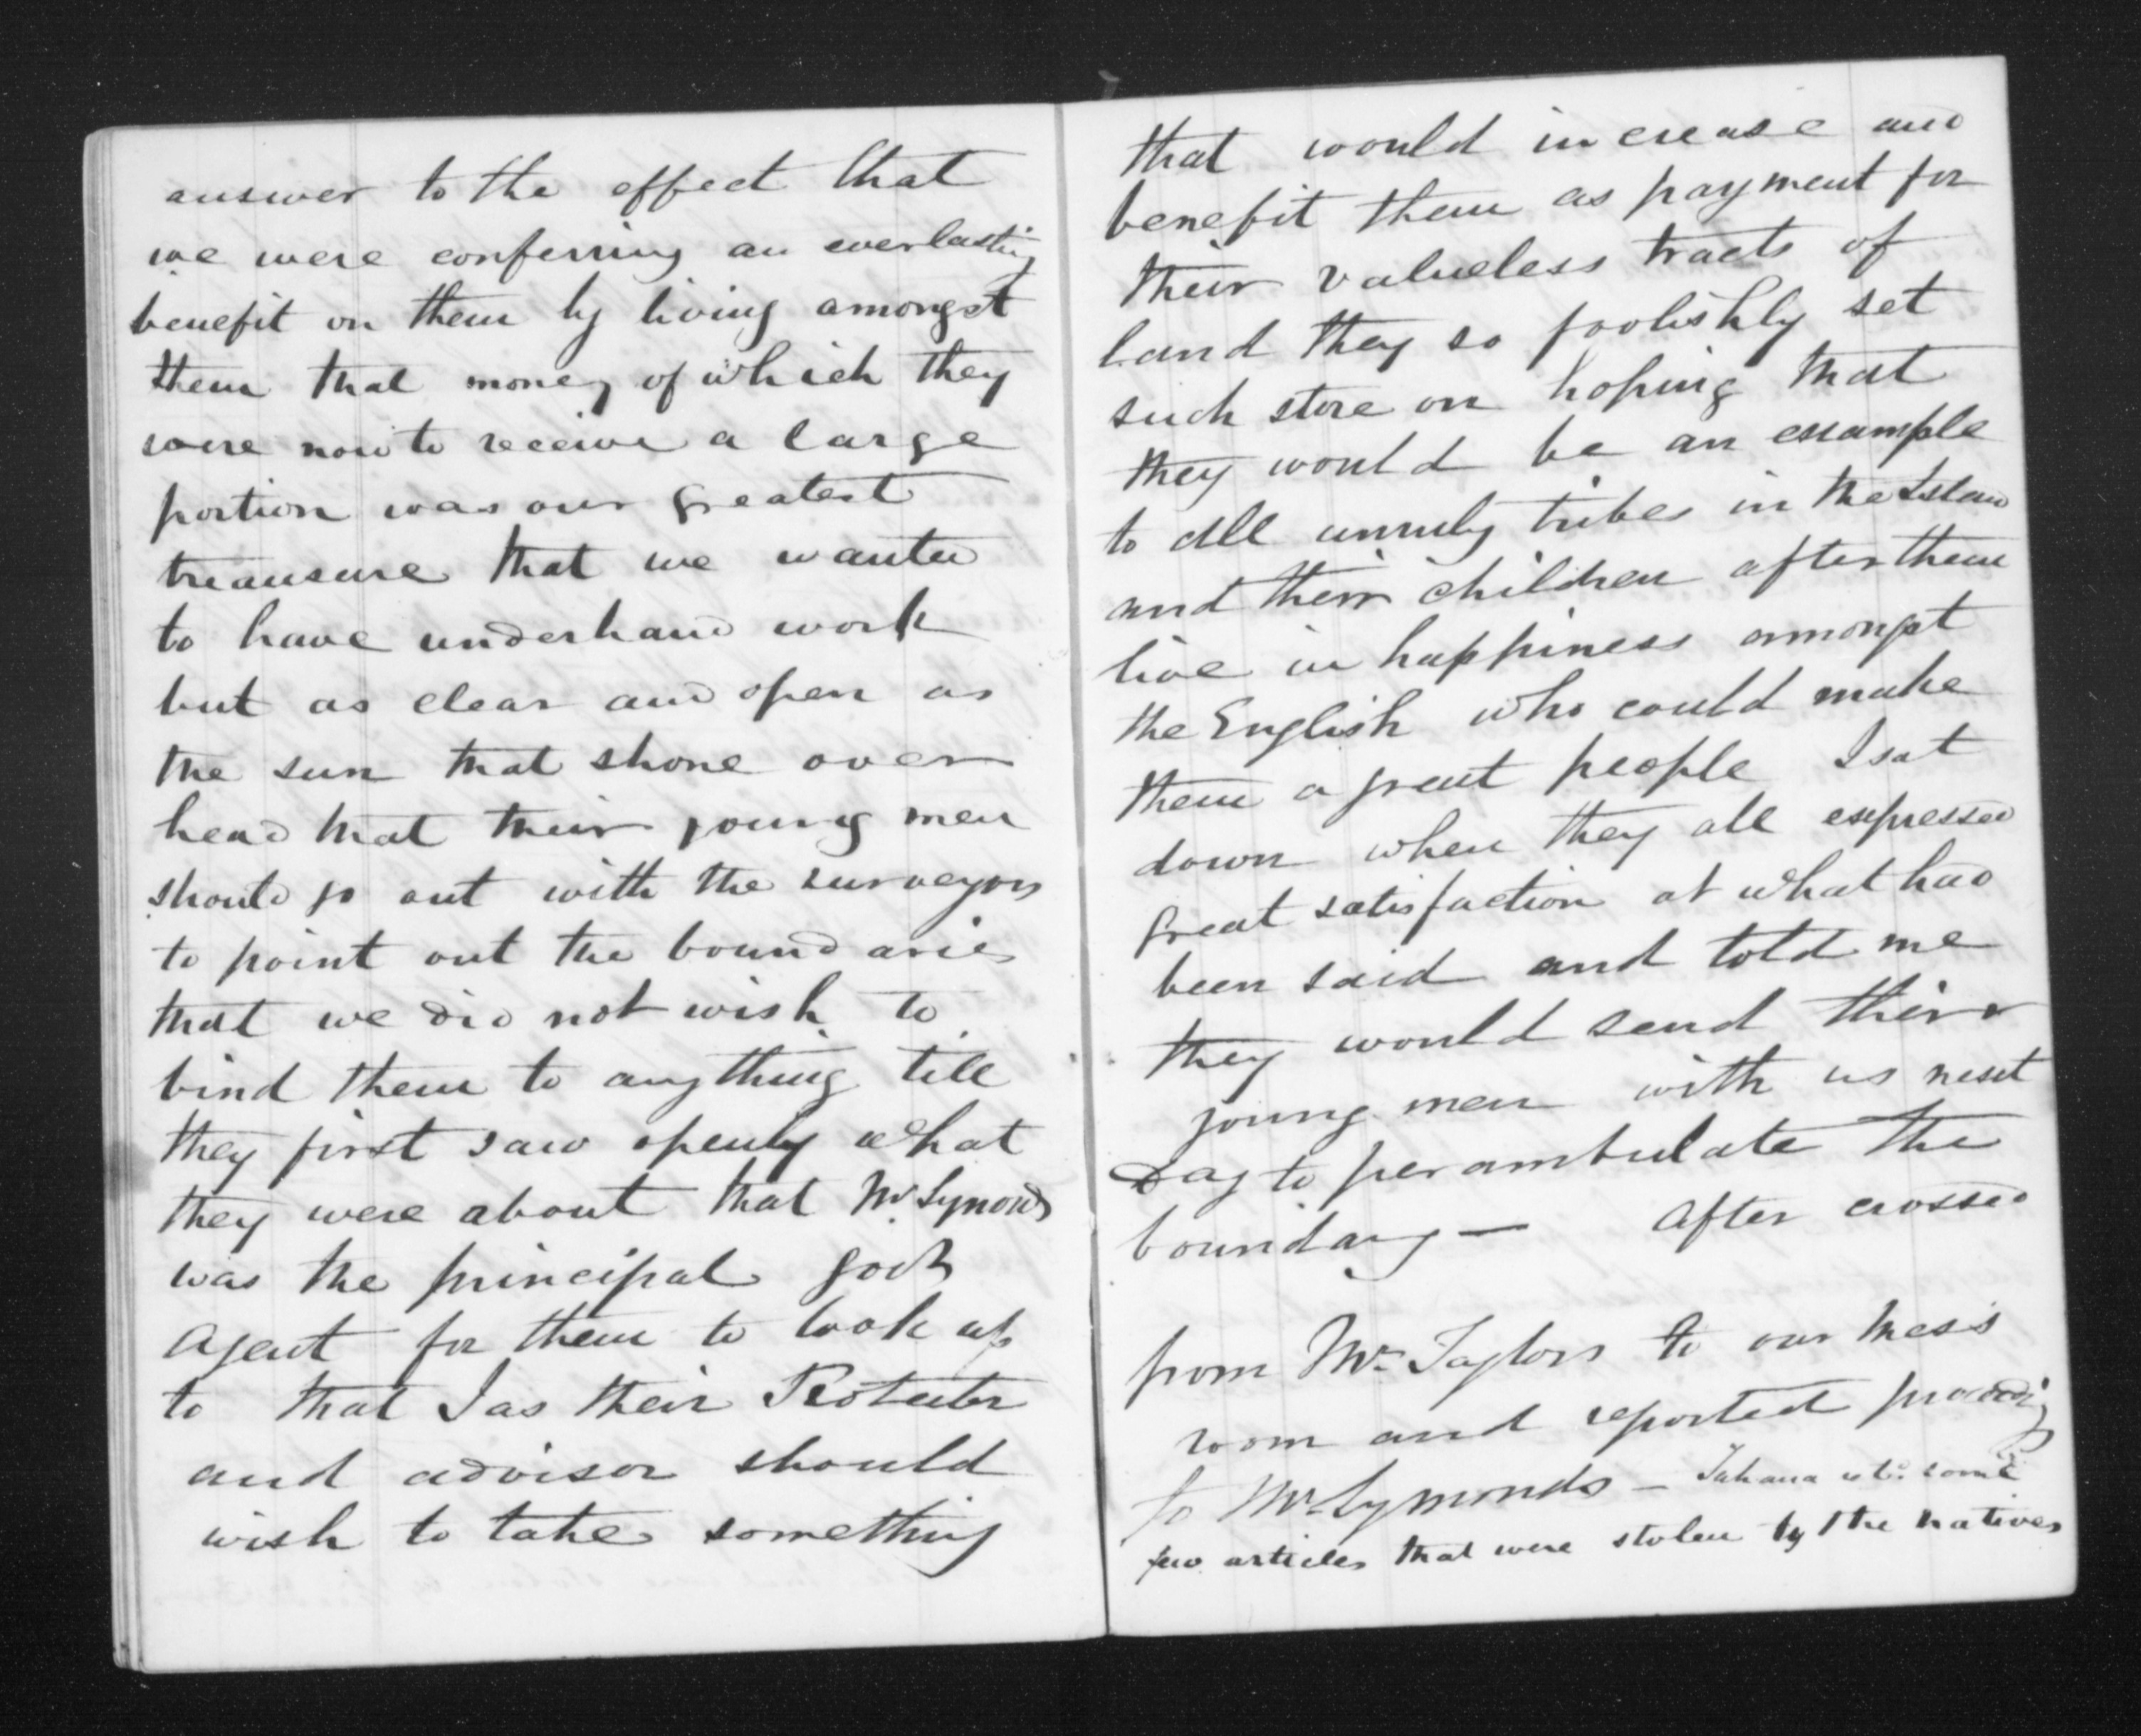 answer to the effect that
we were conferring an everlasting
benefit on them by living amongst
them that money of which they
were now to receive a large
portion was our greatest
treausure that we wanted
to have underhand work
but as clear and open as
the sun that shone over
head that their young men
should go out with the surveyors
to point out the boundaries
that we did not wish to
bind them to anything till
they first saw openly what
they were about that Mr Symonds
was the principal
Agent for them to look up
to that I as their Protector
and advisor should
wish to take something
that would increase and
benefit them as payment for
their valueless tracts of
land they so foolishly set
such store on hoping that
they would be an example
to all unruly tribes in the Island
and their children after them
live in happiness amongst
the English who could make
them a great people I sat
down when they all expressed
great satisfaction at what had
been said and told me
they would send their
young men with us next
day to perambulate the
boundary — After crossed
from Mr Taylors to our Mess
room and reported proceedings
to Mr Symonds — some
few articles that were stolen by the natives